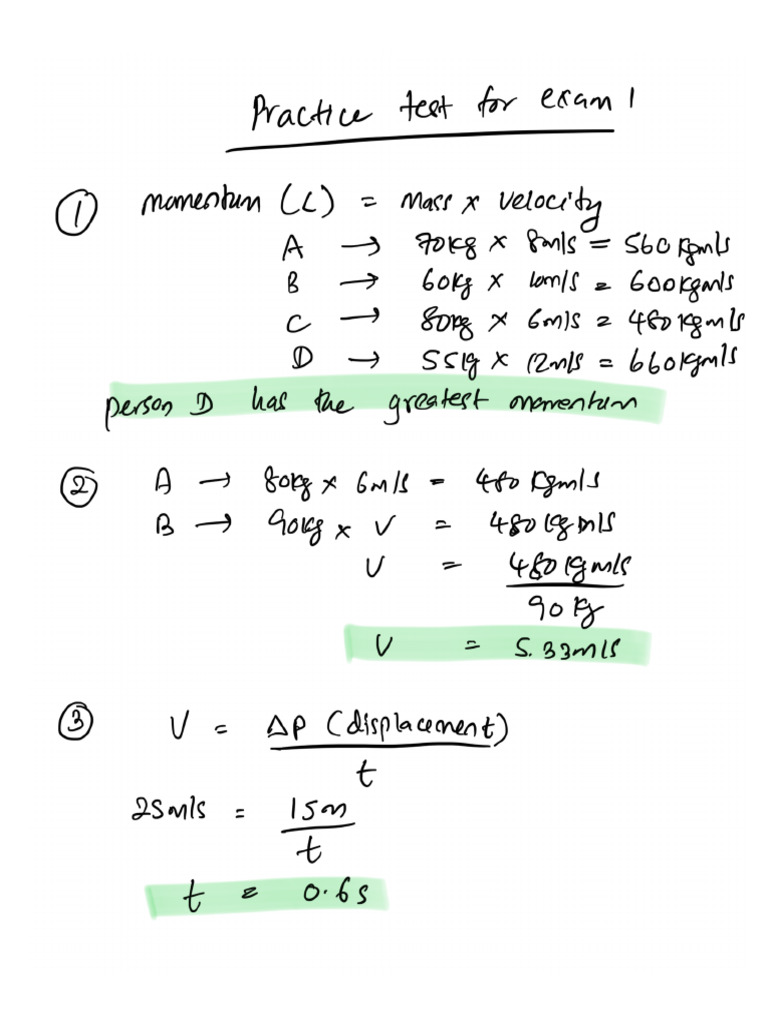 Practice test for exam 1
① momentum (L) = mass x velocity
A → 70kg x 8m/s = 560 kgm/s
B → 60kg x 10m/s = 600kgm/s
C → 80kg x 6m/s = 480kgm/s
D → 55kg x 12m/s = 660kgm/s
person D has the greatest momentum
② A → 80kg x 6m/s = 480 kgm/s
B → 90kg x V = 480kgm/s
V = 480kgm/s
90kg
V = 5.33m/s
③ V = ΔP (displacement)
t
25m/s = 15m
t
t = 0.6s